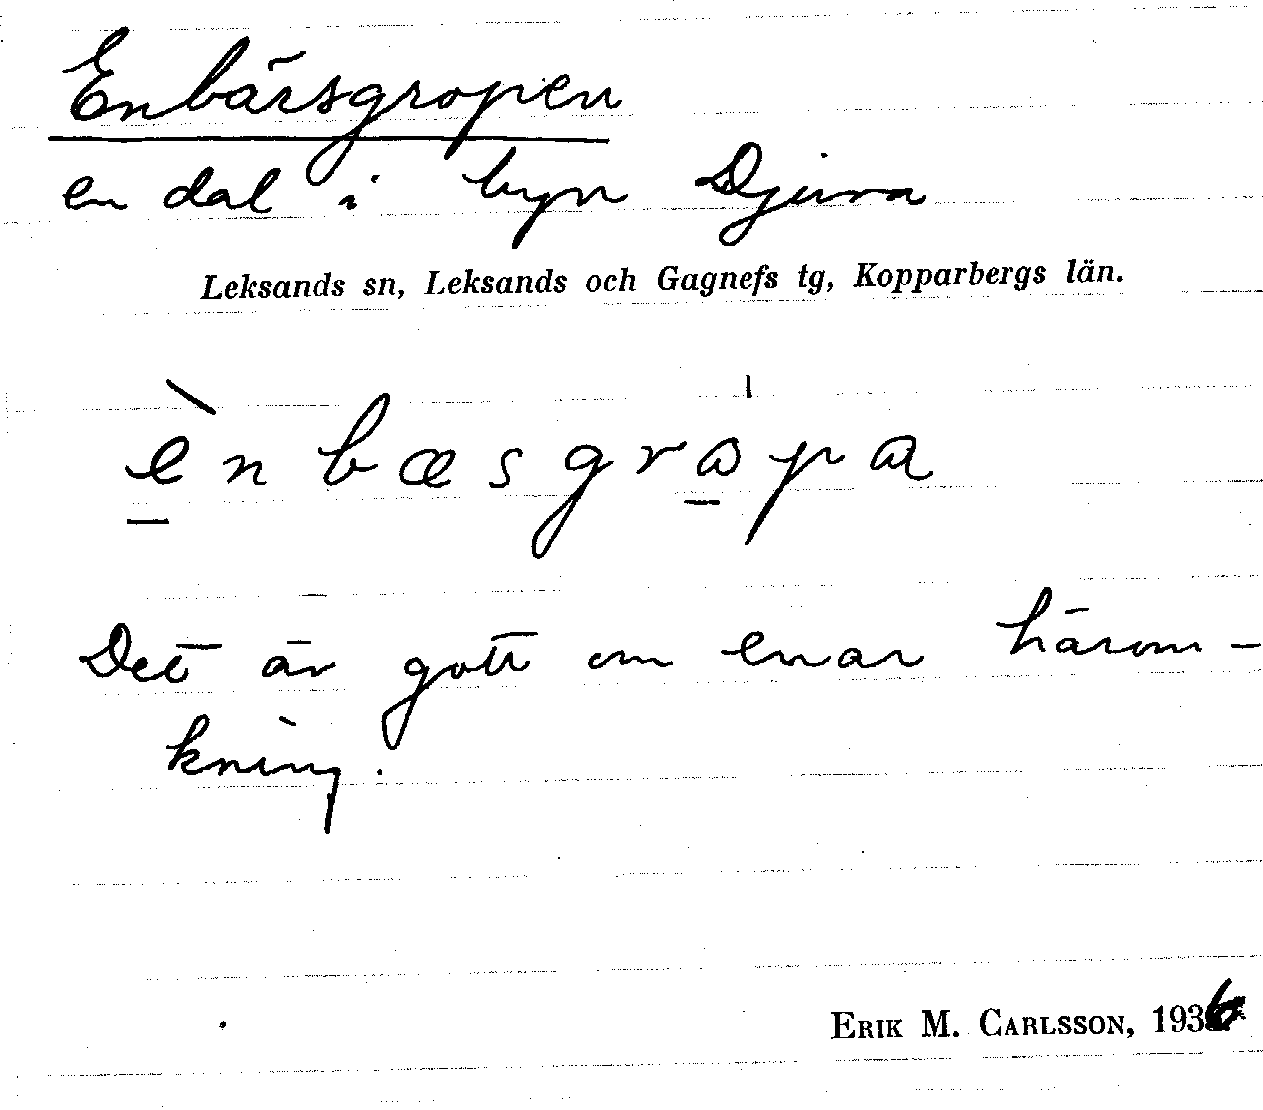 Enbärsgropen
en dal i byn Djura
Leksands sn, Leksands och Gagnefs tg, Kopparbergs län.
ènbæsgrɷpa
Det är gott om enar härom-
kring.
ERIK M. CARLSSON, 1936